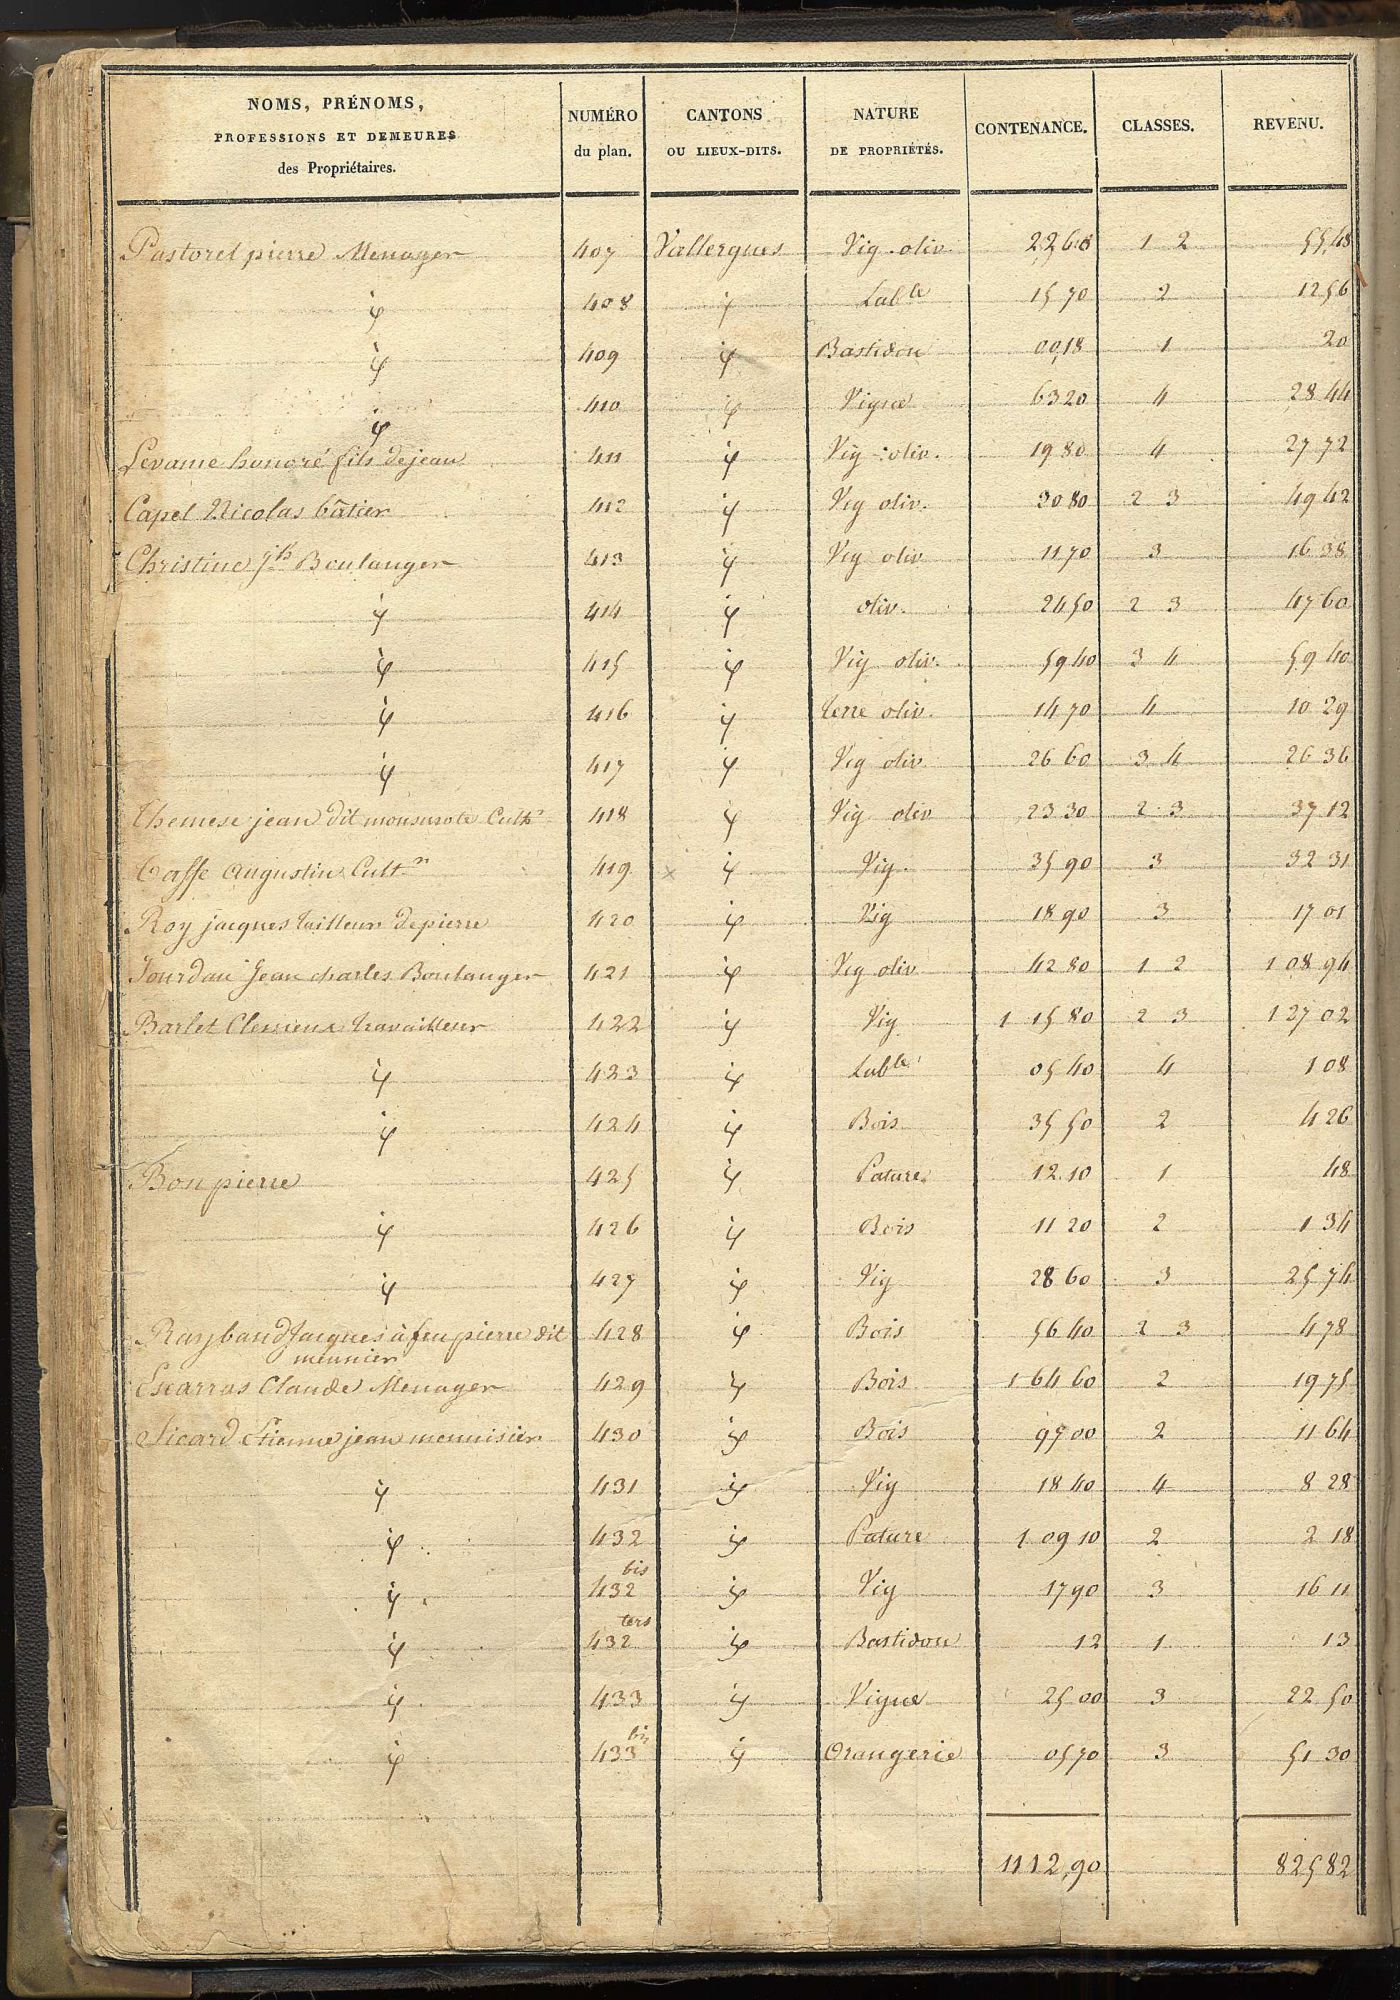 NOMS, PRÉNOMS, PROFESSIONS ET DEMEURES des Propriétaires. NUMÉRO du plan. CANTONS OU LIEUX-DITS. NATURE DE PROPRIÉTÉS. CONTENANCE. CLASSES. REVENU.
Pastorel pierre Menager 407 Vallergues Vig. oliv. 22,60 1 2 55,48
id 408 id Lable 15 70 2 12 56
id 409 id Bastidon 00,18 1 20
id 410 id Vigne 63 20 4 28 44
Levame honoré fils de jean 411 id Vig oliv. 19 80 4 27 72
Capel Nicolas bâtier 412 id Vig oliv. 30 80 2 3 49 42
Christine jh Boulanger 413 id Vig oliv 11 70 3 16 38
id 414 id oliv. 24 50 2 3 47 60
id 415 id Vig oliv. 59 40 3 4 59 40
id 416 id terre oliv. 14 70 4 10 29
id 417 id Vig oliv. 26 60 3 4 26 36
jean dit Cultr 418 id Vig oliv 23 30 2 3 37 12
Augustin Cultr 419 id Vig. 35 90 3 32 31
Roy jacques tailleur de pierre 420 id Vig 18 90 3 17 01
Jourdan Jean charles Boulanger 421 id Vig oliv 42 80 1 2 1 08 94
Barlet travailleur 422 id Vig 1 15 80 2 3 1 27 02
id 423 id Lable 05 40 4 1 08
id 424 id Bois 35 50 2 4 26
Bon pierre 425 id Pature 12 10 1 48
id 426 id Bois 11 20 2 1 34
id 427 id Vig 28 60 3 25 74
Raybaud Jacques à feu pierre dit 428 id Bois 56 40 2 3 4 78
meunier
Escarras Claude Menager 429 id Bois 1 64 60 2 19 75
Sicard Etienne jean menuisier 430 id Bois 97 00 2 11 64
id 431 id Vig 18 40 4 8 28
id 432 id Pature 1 09 10 2 2 18
id 432 bis id Vig 17 90 3 16 11
id 432 ters id Bastidon 12 1 13
id 433 id Vigne 25 00 3 22 50
id 433 bis id Orangerie 05 70 3 51 30
11 12,90 825 82